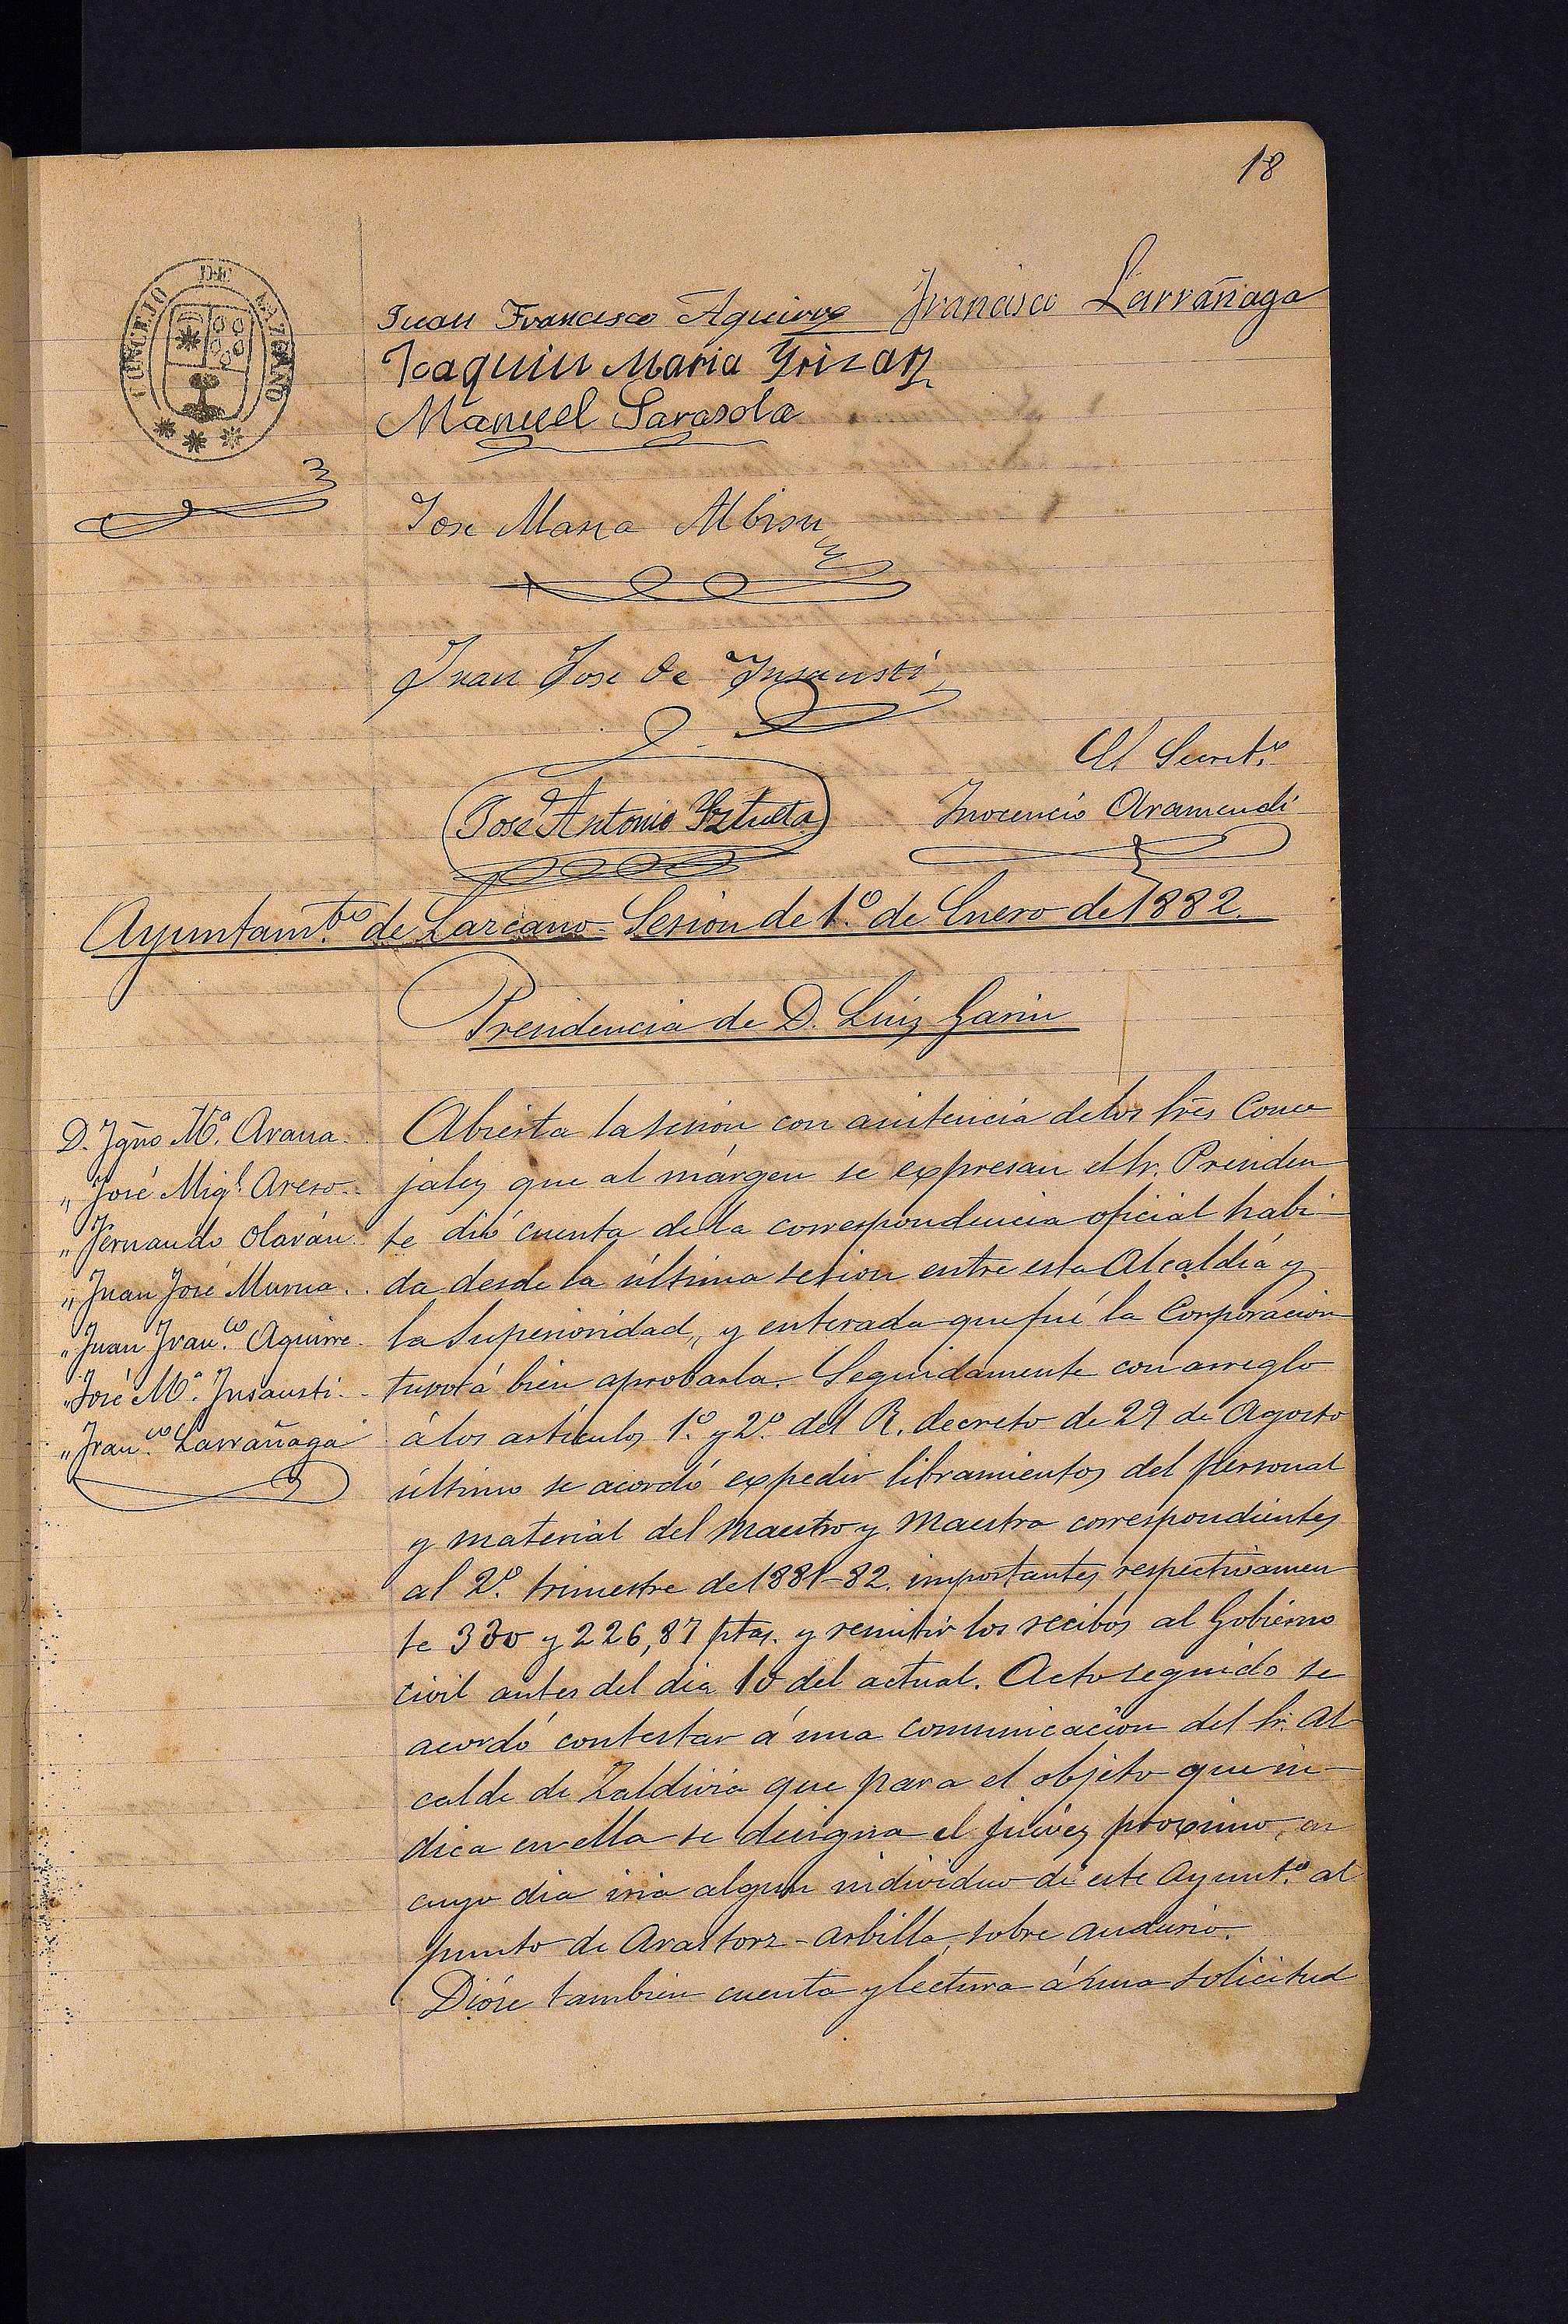 18
CONCEJO DE LAZCANO
Juan Francisco Aguirre Francisco Larrañaga
Joaquin Maria Yrizar
Manuel Sarasola
Jose Maria Albisu
Juan Jose de Insausti
El Secret.º
Jose Antonio Yztueta Inocencio Aramendi
Ayuntam.to de Lazcano - Sesion de 1.º de Enero de 1882.
Presidencia de D. Luiz Garin
D. Ygño M.ª Arana.
„ José Mig.l Areso.
„ Fernando Olarán.
„ Juan José Murua.
„ Juan Fran.co Aguirre.
„ José M.ª Insausti.
„ Fran.co Larrañaga
Abierta la sesion con asistencia de los Sres Conce
jales que al márgen se expresan el Sr. Presiden
te dió cuenta de la correspondencia oficial habi-
da desde la última sesion entre esta Alcaldía y
la Superioridad, y enterada que fué la Corporacion
tuvo á bien aprobarla. Seguidamente con arreglo
á los artículos 1.º y 2.º del R. decreto de 29 de Agosto
último se acordó expedir libramientos del personal
y material del Maestro y Maestra correspondientes
al 2.º trimestre de 1881-82. importantes respectivamen
te y 226,87 ptas. y remitir los recibos al Gobierno
civil antes del dia 10 del actual. Acto seguido se
acordó contestar á una comunicacion del Sr. Al-
calde de Zaldivia que para el objeto que in-
dica en ella se designa el juéves proximo, en
cuyo dia iria algun individuo de este Ayunt.º al
punto de sobre
Dióse tambien cuenta y lectura á una solicitud